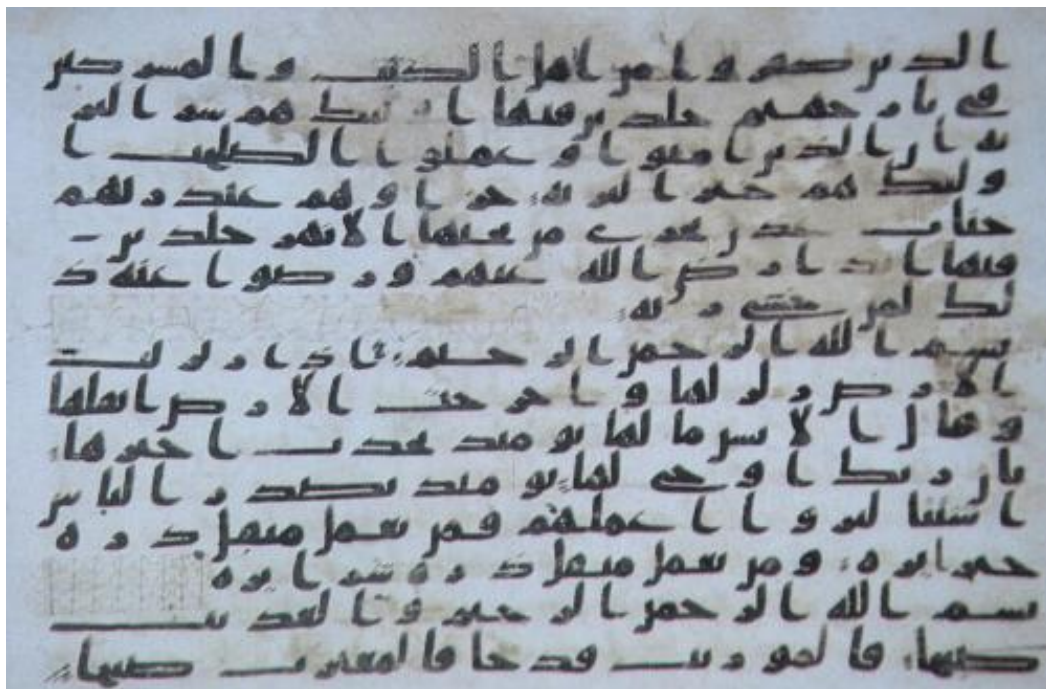 الذين كفروا من اهل الكتب والمشركين
في نار جهنم خلدين فيها اولئك هم شر البر
يه ان الذين امنوا وعملوا الصلحت ا
ولئك هم خير البريه جزاوهم عند ربهم
جنات عدن تجري من تحتها الانهر خلدين
فيها ابدا رضي الله عنهم ورضوا عنه ذ
لك لمن خشي ربه
بسم الله الرحمن الرحيم اذا زلزلت
الارض زلزلها واخرجت الارض اثقلها
وقال الانسن ما لها يومئذ تحدث اخبرها
بان ربك اوحى لها يومئذ يصدر الناس
اشتتا ليروا اعملهم فمن يعمل مثقل ذره
خيرا يره ومن يعمل مثقل ذره شرا يره
بسم الله الرحمن الرحيم والعديت
ضبحا فالموريت قدحا فالمغيرت صبحا